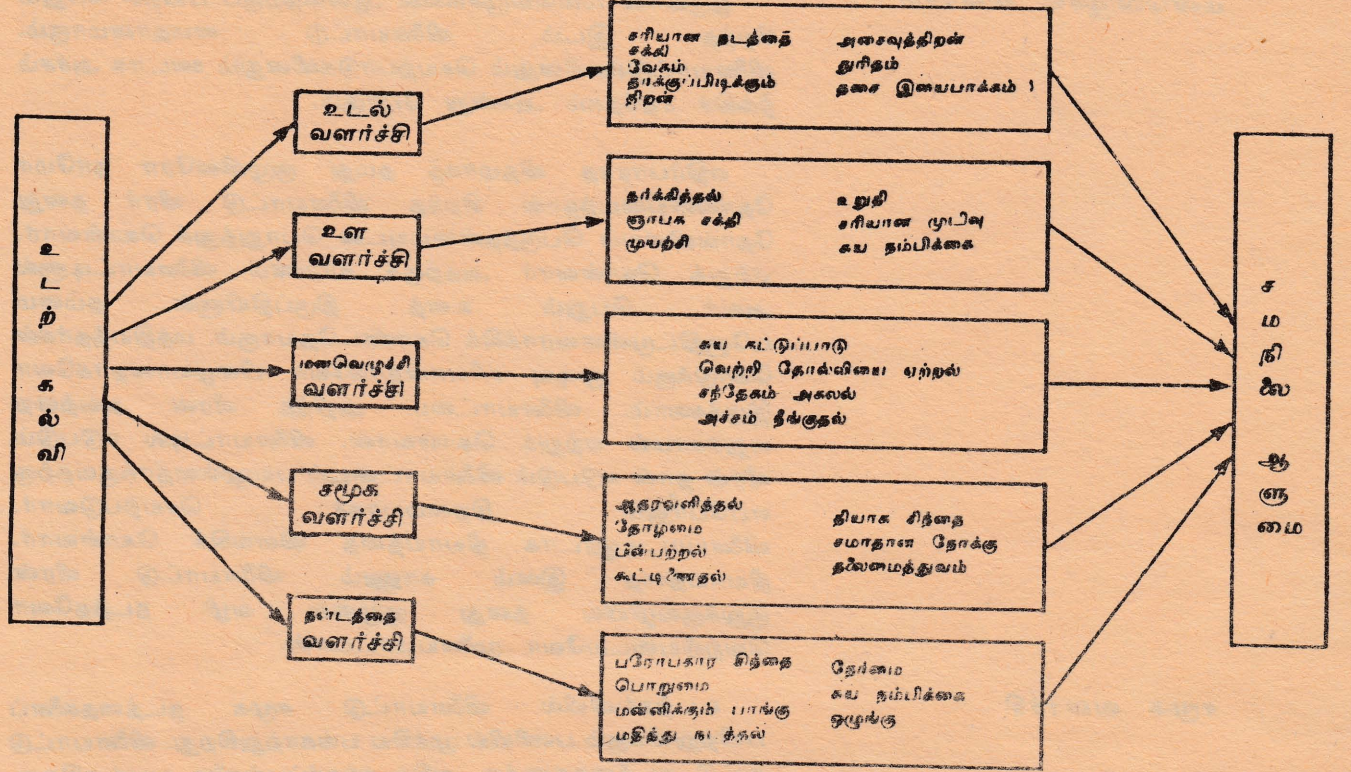 உடற்கல்வி
உடல்
வளர்ச்சி
உள
வளர்ச்சி
மனவெழுச்சி
வளர்ச்சி
சமூக
வளர்ச்சி
நன்டத்தை
வளர்ச்சி
சரியான நடத்தை
சக்தி
வேகம்
தாக்குப்பிடிக்கும்
திறன்
அசைவுத்திறன்
துரிதம்
தசை இயைபாக்கம்
தர்க்கித்தல்
ஞாபக சக்தி
முயற்சி
உறுதி
சரியான முடிவு
சுய நம்பிக்கை
சுய கட்டுப்பாடு
வெற்றி தோல்வியை ஏற்றல்
சந்தேகம் அகலல்
அச்சம் நீங்குதல்
ஆதரவளித்தல்
தோழமை
பின்பற்றல்
கூட்டிணைதல்
தியாக சிந்தை
சமாதான நோக்கு
தலைமைத்துவம்
பரோபகார சிந்தை
பொறுமை
மன்னிக்கும் பாங்கு
மதித்து நடத்தல்
நேர்மை
சுய நம்பிக்கை
ஒழுங்கு
சமநிலை ஆளுமை